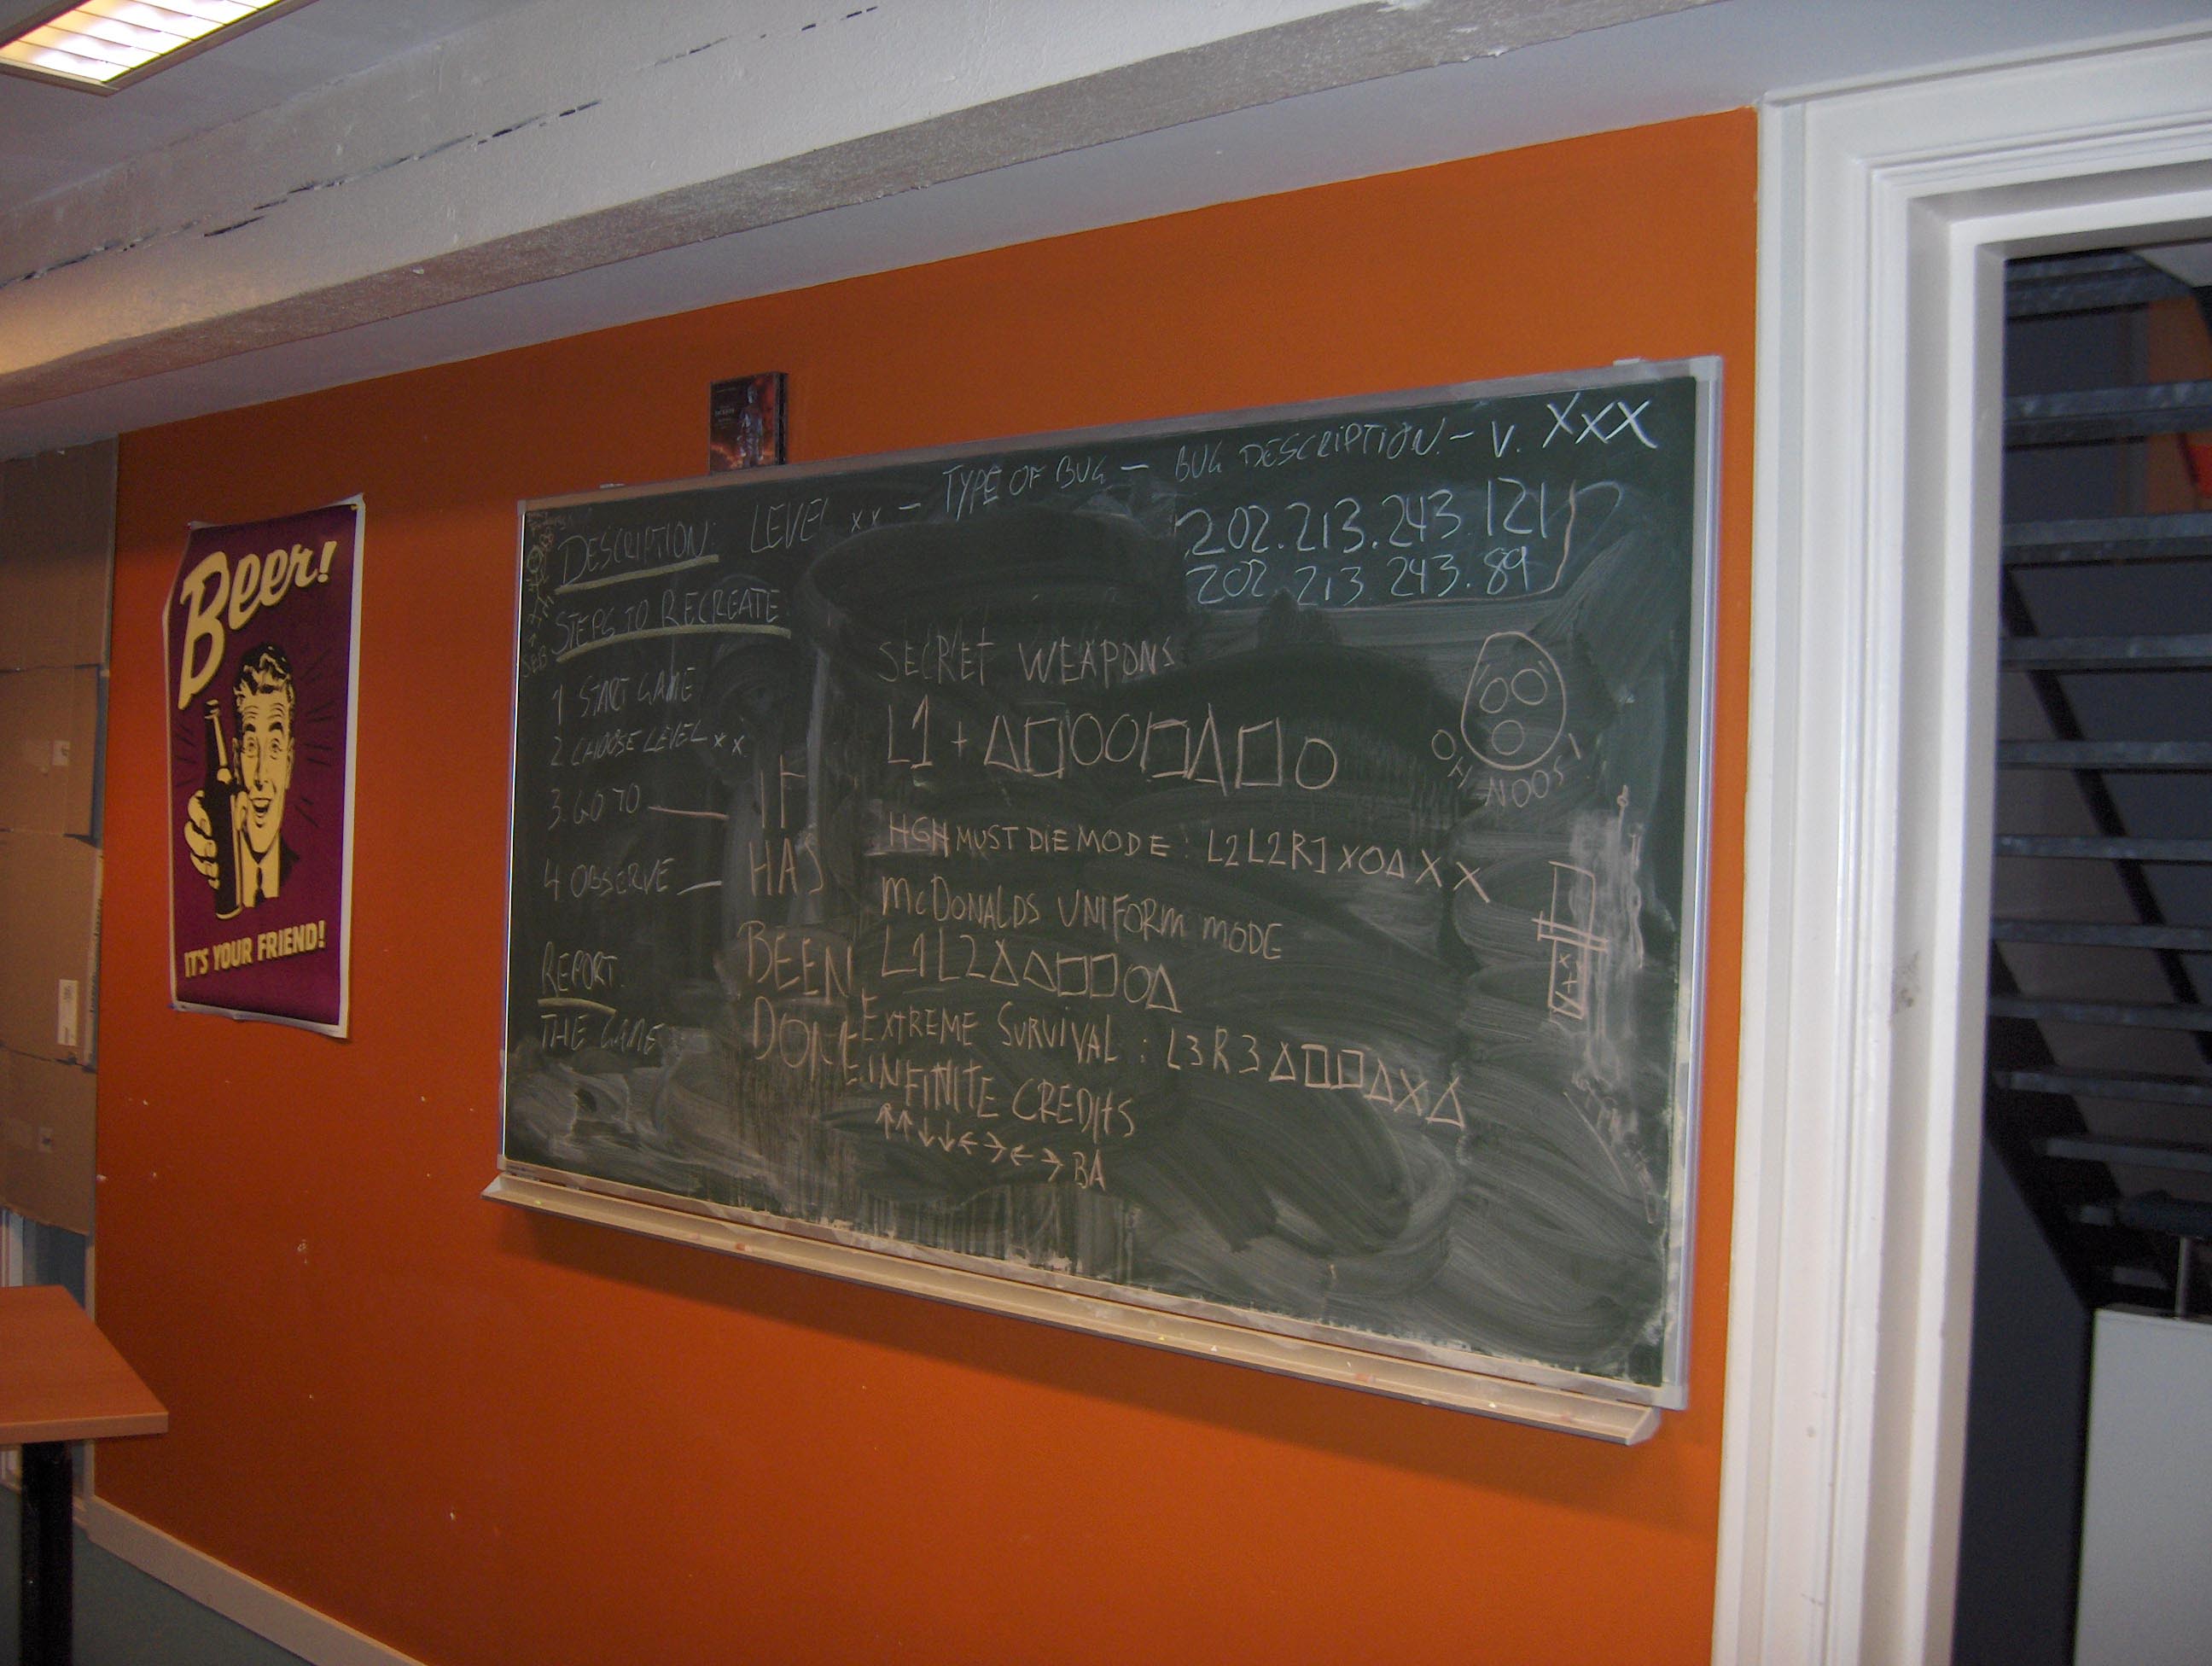 Beer!
IT'S YOUR FRIEND!
DESCRIPTION: LEVEL xx - TYPE OF BUG - BUG DESCRIPTION. - V. XXX
202.213.243.121
202.213.243.89
STEPS TO RECREATE
1 START GAME
2 CHOOSE LEVEL xx
3. GO TO
4 OBSERVE
REPORT.
THE GAME
SEB
IF
HAS
BEEN
DONE
SECRET WEAPONS
L1 + △□○○□△□○
HGH MUST DIE MODE: L2L2R1XO△XX
MCDONALDS UNIFORM MODE
L1L2△△□□○△
EXTREME SURVIVAL: L3R3△□□△X△
INFINITE CREDITS
↑↑↓↓←→←→BA
OH NOOS!